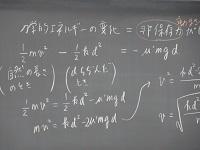 力学的エネルギーの変化 = 非保存力が
1/2 mv² − 1/2 kd² = −μ'mgd
(自然の長さのとき) (dちぢんだとき)
1/2 mv² = 1/2 kd² − μ'mgd
mv² = kd² − 2μ'mgd
v² = kd² −
v = √kd²